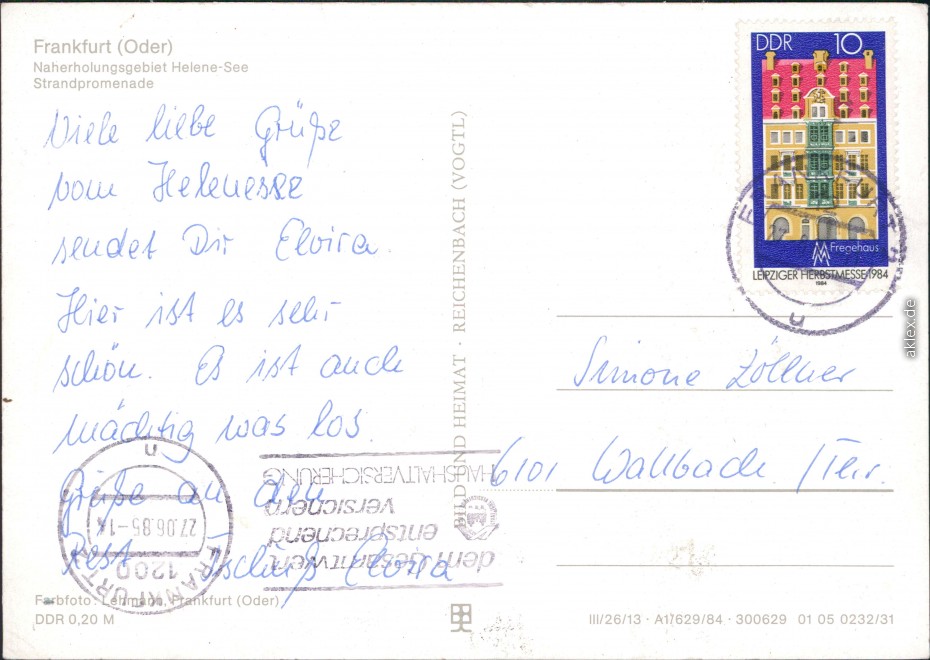 Frankfurt (Oder)
Naherholungsgebiet Helene-See
Strandpromenade
Viele liebe Grüße
vom Helenesee
sendet Dir Elvira.
Hier ist es sehr
schön. Es ist auch
mächtig was los.
Grüße an den
Rest Tschüß Elvira
Farbfoto: Lehmann, Frankfurt (Oder)
DDR 0,20 M
BILD UND HEIMAT · REICHENBACH (VOGTL)
DDR 10
Fregehaus
LEIPZIGER HERBSTMESSE 1984
1984
FRANKFURT
u
Simone Zöllner
6101 Wallbach /Thr.
dem Gesamtwert
entsprechend
versichern
HAUSHALTVERSICHERUNG
FRANKFURT
1200
27.06.85-14
u
III/26/13 · A1/629/84 · 300629 01 05 0232/31
aklex.de